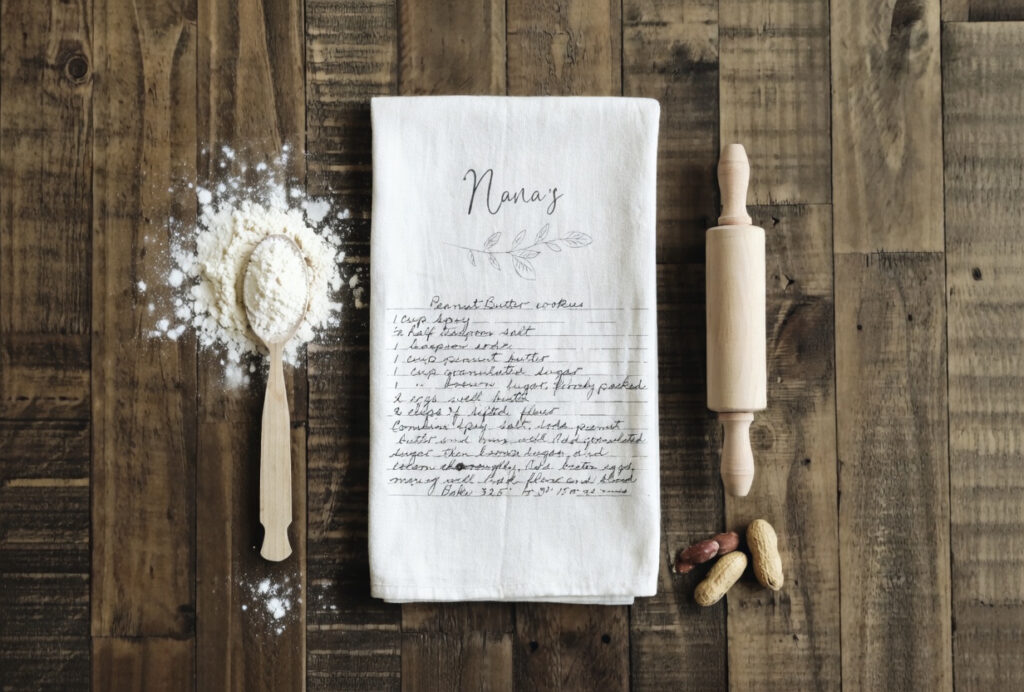 Nana's
Peanut Butter cookies
1 cup Spry
½ half teaspoon salt
1 teaspoon soda
1 cup peanut butter
1 cup granulated sugar
1 " brown sugar, firmly packed
2 eggs well beaten
2 cups of sifted flour
Combine Spry, salt, soda peanut
butter and mix well Add granulated
sugar then brown sugar, and
cream thoroughly, Add beaten eggs,
mixing well Add flour and blend
Bake 325° 15